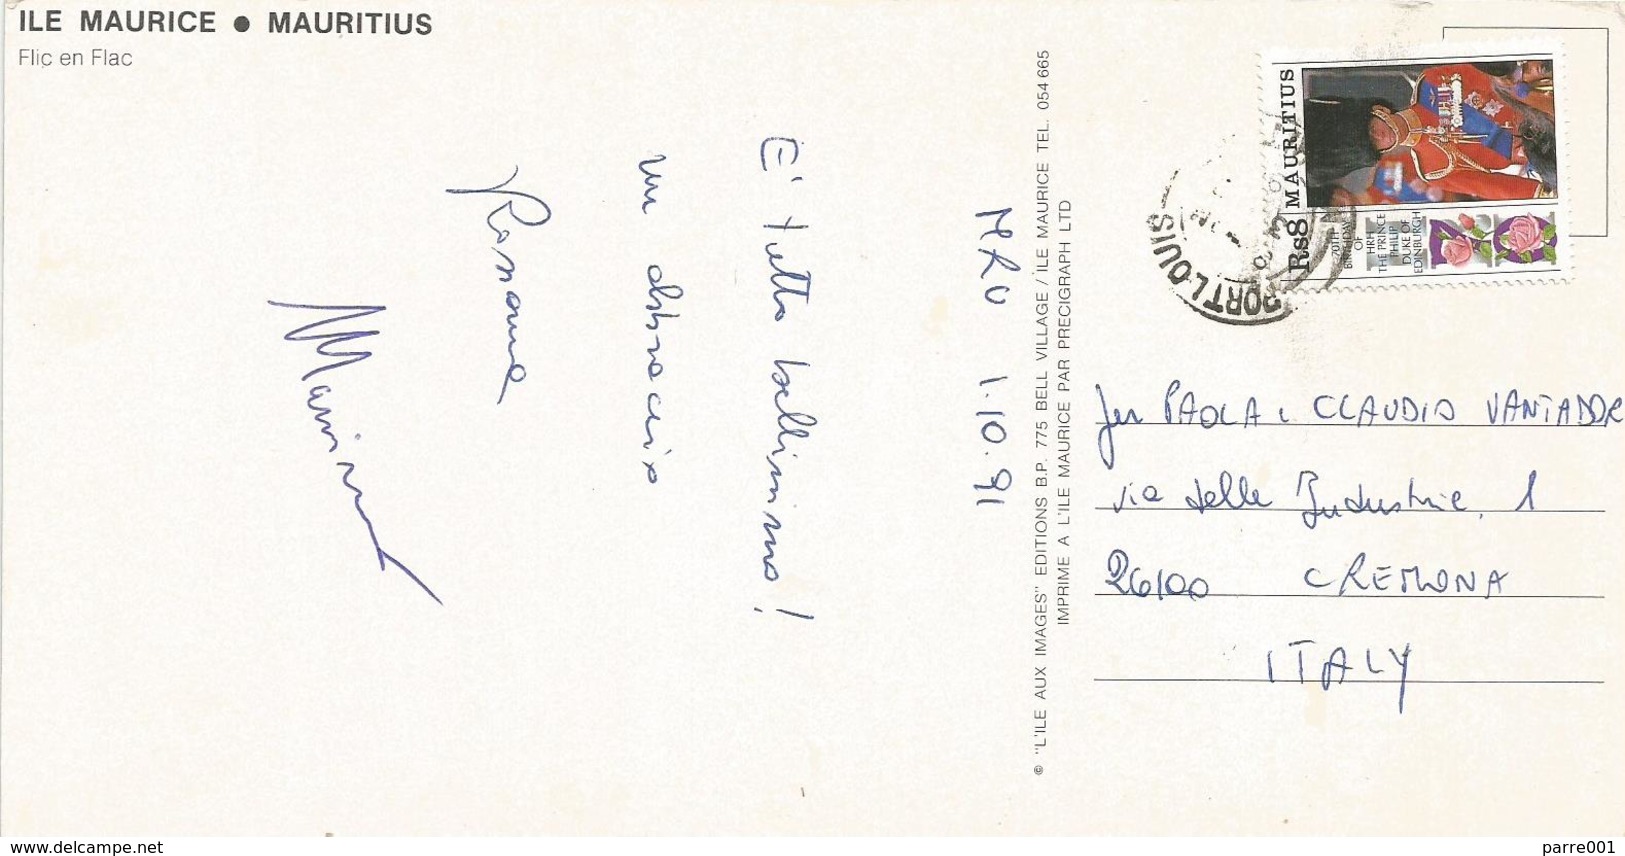 ILE MAURICE ● MAURITIUS
Flic en Flac
MRU 1.10.91
E' tutto bellissimo!
un abbraccio
Rosanna
© "L'ILE AUX IMAGES" EDITIONS B.P. 775 BELL VILLAGE / ILE MAURICE TEL. 054 665
IMPRIME A L'ILE MAURICE PAR PRECIGRAPH LTD
MAURITIUS
Rs8
70TH
BIRTHDAY
OF
HRH
THE PRINCE
PHILIP
DUKE OF
EDINBURGH
PORT LOUIS
PAOLA e CLAUDIO VANTADOR
via delle Industrie, 1
26100 CREMONA
ITALY
www.delcampe.net
parre001